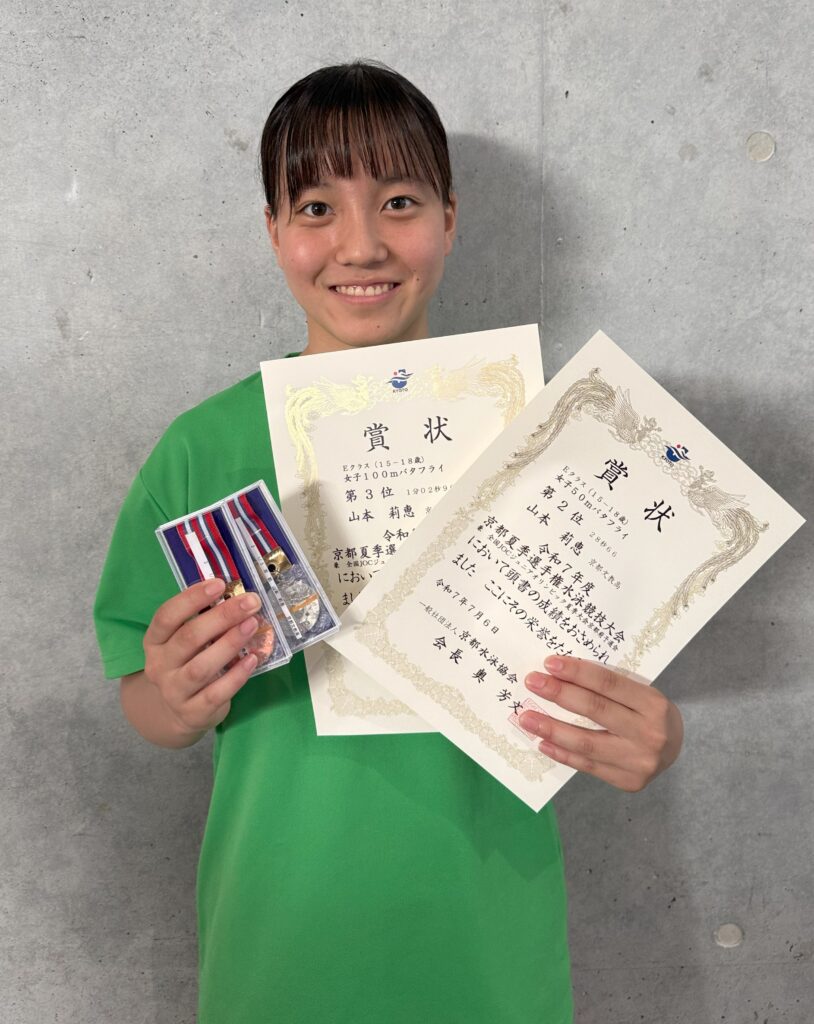 KYOTO
賞状
Eクラス(15-18歳)
女子100mバタフライ
第3位 1分02秒9
山本 莉恵
令和
京都夏季選
兼 全国JOCジュ
において
まし
賞状
Eクラス(15-18歳)
女子50mバタフライ
第2位 28秒66
山本 莉恵 京都文教高
令和7年度
京都夏季選手権水泳競技大会
兼 全国JOCジュニアオリンピック夏季大会京都府予選会
において頭書の成績をおさめられ
ました ここにその栄誉をたた
令和7年7月6日
一般社団法人 京都水泳協会
会長 奥 芳文